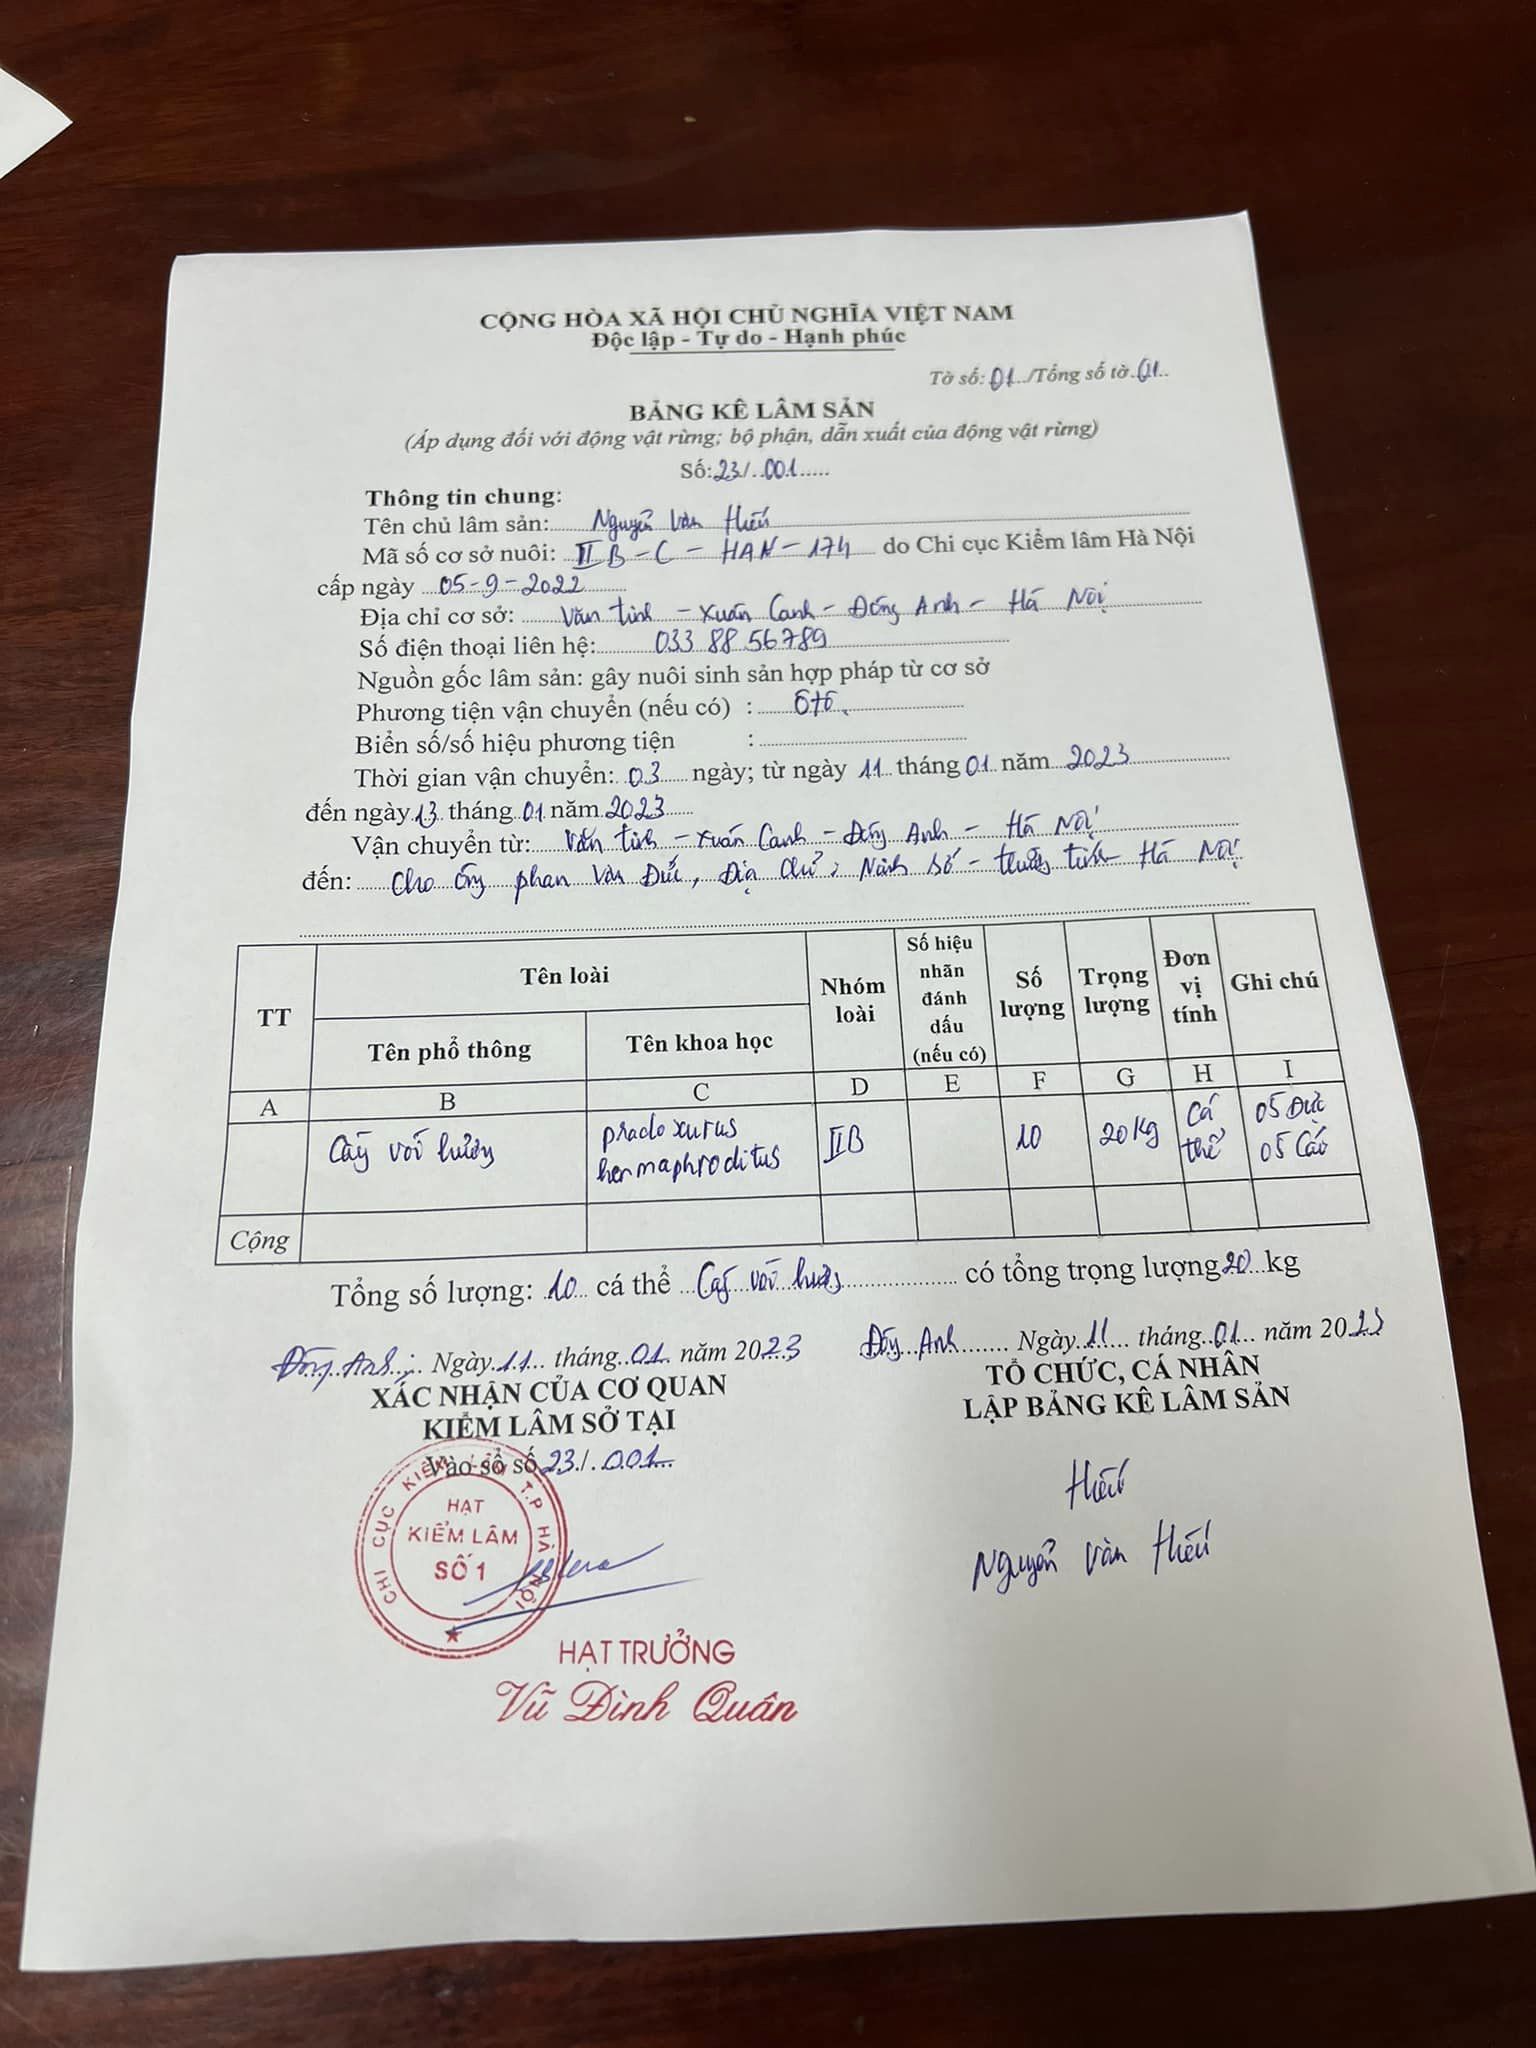 CỘNG HÒA XÃ HỘI CHỦ NGHĨA VIỆT NAM
Độc lập - Tự do - Hạnh phúc
Tờ số: 01.../Tổng số tờ.01..
BẢNG KÊ LÂM SẢN
(Áp dụng đối với động vật rừng; bộ phận, dẫn xuất của động vật rừng)
Số:23/..001.....
Thông tin chung:
Tên chủ lâm sản: Nguyễn Văn Hiếu
Mã số cơ sở nuôi: IIB-C-HAN-174 do Chi cục Kiểm lâm Hà Nội
cấp ngày 05-9-2022
Địa chỉ cơ sở: Văn tinh - Xuân Canh - Đông Anh - Hà Nội
Số điện thoại liên hệ: 033 88 56789
Nguồn gốc lâm sản: gây nuôi sinh sản hợp pháp từ cơ sở
Phương tiện vận chuyển (nếu có) : ôtô
Biển số/số hiệu phương tiện :
Thời gian vận chuyển: 03 ngày; từ ngày 11 tháng 01 năm 2023
đến ngày 13 tháng 01 năm 2023
Vận chuyển từ: Văn tinh - Xuân Canh - Đông Anh - Hà Nội
đến: Cho ông phan Văn Đức, Địa chỉ: Ninh Sở - thường tín - Hà Nội
TT
Tên loài
Nhóm loài
Số hiệu nhãn đánh dấu (nếu có)
Số lượng
Trọng lượng
Đơn vị tính
Ghi chú
Tên phổ thông
Tên khoa học
A B C D E F G H I
Cầy vòi hương
pradoxurus hermaphroditus
IIB
10
20kg
Cá thể
05 Đực
05 Cái
Cộng
Tổng số lượng: 10 cá thể Cầy vòi hương có tổng trọng lượng 20 kg
Đông Anh, Ngày 11 tháng 01 năm 2023
XÁC NHẬN CỦA CƠ QUAN
KIỂM LÂM SỞ TẠI
Vào sổ số 23/.001
CHI CỤC KIỂM LÂM T.P HÀ NỘI
HẠT
KIỂM LÂM
SỐ 1
HẠT TRƯỞNG
Vũ Đình Quân
Đông Anh Ngày 11 tháng 01 năm 2023
TỔ CHỨC, CÁ NHÂN
LẬP BẢNG KÊ LÂM SẢN
Hiếu
Nguyễn Văn Hiếu